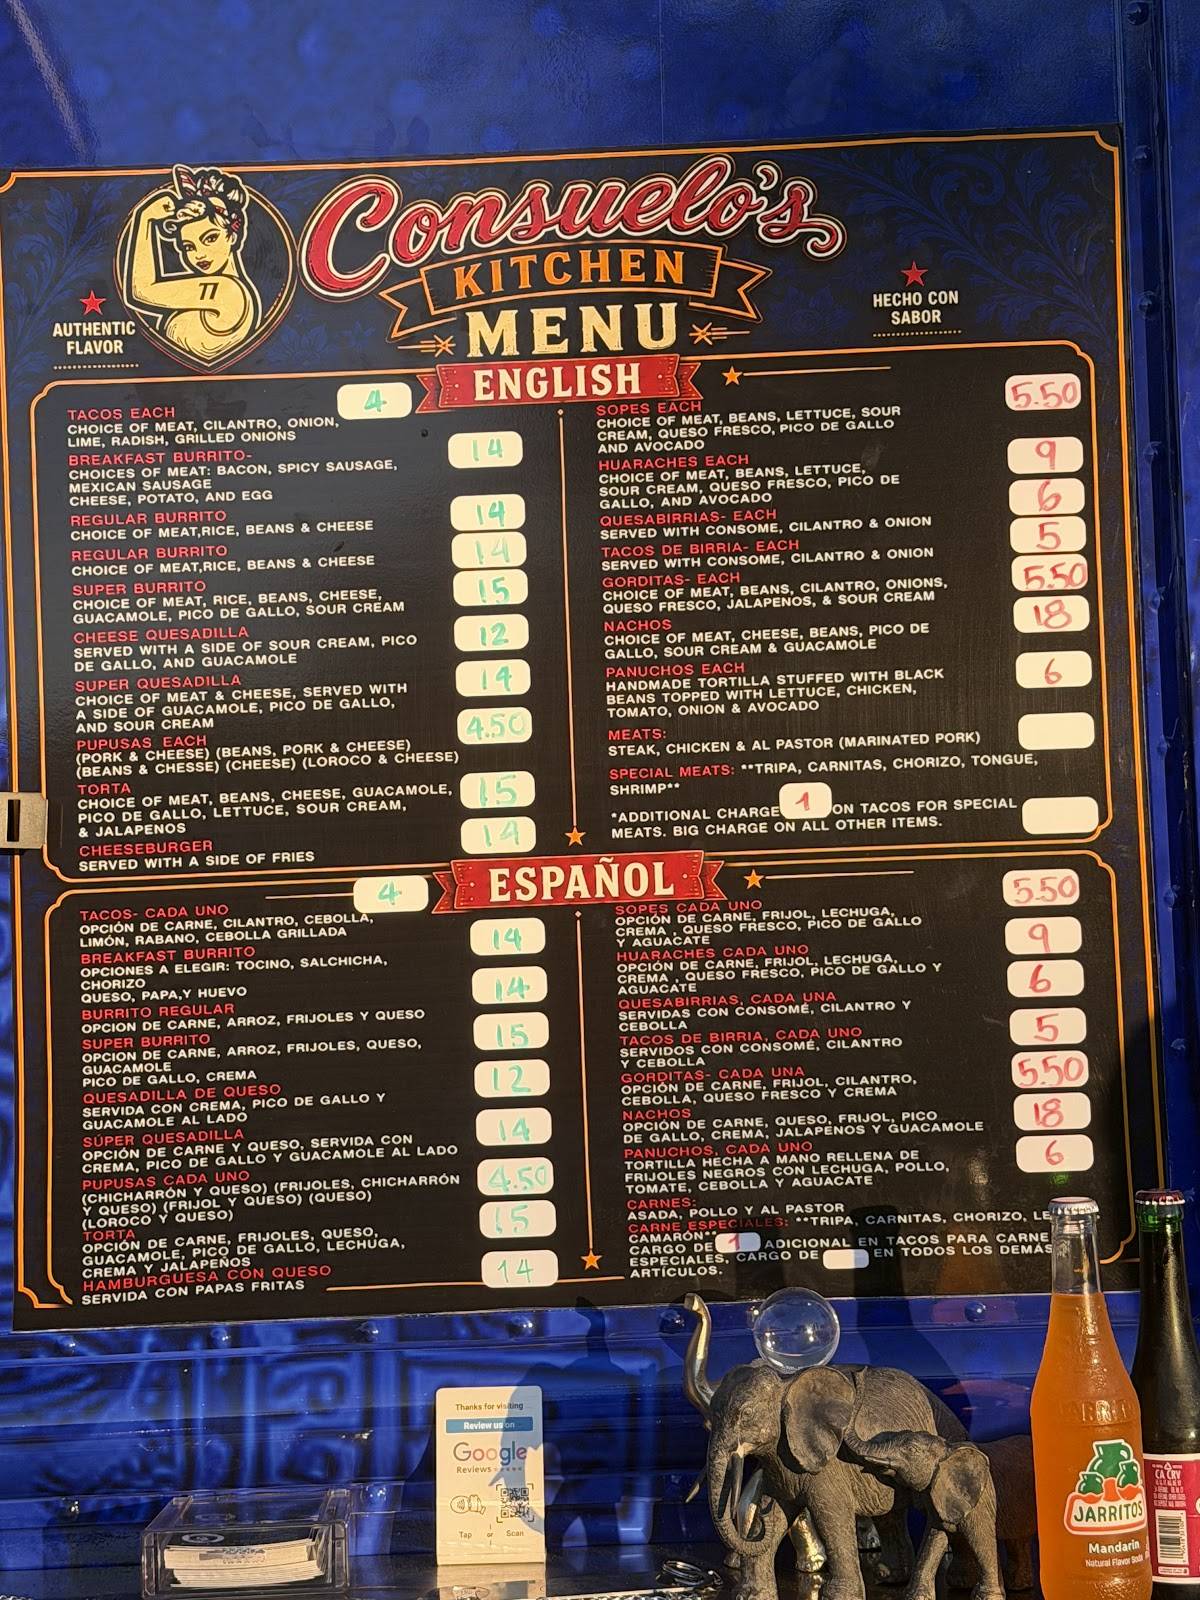 Consuelo's
KITCHEN
MENU
AUTHENTIC
FLAVOR
HECHO CON
SABOR
ENGLISH
TACOS EACH 4
CHOICE OF MEAT, CILANTRO, ONION,
LIME, RADISH, GRILLED ONIONS
BREAKFAST BURRITO- 14
CHOICES OF MEAT: BACON, SPICY SAUSAGE,
MEXICAN SAUSAGE
CHEESE, POTATO, AND EGG
REGULAR BURRITO 14
CHOICE OF MEAT,RICE, BEANS & CHEESE
REGULAR BURRITO 14
CHOICE OF MEAT,RICE, BEANS & CHEESE
SUPER BURRITO 15
CHOICE OF MEAT, RICE, BEANS, CHEESE,
GUACAMOLE, PICO DE GALLO, SOUR CREAM
CHEESE QUESADILLA 12
SERVED WITH A SIDE OF SOUR CREAM, PICO
DE GALLO, AND GUACAMOLE
SUPER QUESADILLA 14
CHOICE OF MEAT & CHEESE, SERVED WITH
A SIDE OF GUACAMOLE, PICO DE GALLO,
AND SOUR CREAM
PUPUSAS EACH 4.50
(PORK & CHEESE) (BEANS, PORK & CHEESE)
(BEANS & CHESSE) (CHEESE) (LOROCO & CHEESE)
TORTA 15
CHOICE OF MEAT, BEANS, CHEESE, GUACAMOLE,
PICO DE GALLO, LETTUCE, SOUR CREAM,
& JALAPENOS
CHEESEBURGER 14
SERVED WITH A SIDE OF FRIES
SOPES EACH 5.50
CHOICE OF MEAT, BEANS, LETTUCE, SOUR
CREAM, QUESO FRESCO, PICO DE GALLO
AND AVOCADO
HUARACHES EACH 9
CHOICE OF MEAT, BEANS, LETTUCE,
SOUR CREAM, QUESO FRESCO, PICO DE
GALLO, AND AVOCADO
QUESABIRRIAS- EACH 6
SERVED WITH CONSOME, CILANTRO & ONION
TACOS DE BIRRIA- EACH 5
SERVED WITH CONSOME, CILANTRO & ONION
GORDITAS- EACH 5.50
CHOICE OF MEAT, BEANS, CILANTRO, ONIONS,
QUESO FRESCO, JALAPENOS, & SOUR CREAM
NACHOS 18
CHOICE OF MEAT, CHEESE, BEANS, PICO DE
GALLO, SOUR CREAM & GUACAMOLE
PANUCHOS EACH 6
HANDMADE TORTILLA STUFFED WITH BLACK
BEANS TOPPED WITH LETTUCE, CHICKEN,
TOMATO, ONION & AVOCADO
MEATS:
STEAK, CHICKEN & AL PASTOR (MARINATED PORK)
SPECIAL MEATS: **TRIPA, CARNITAS, CHORIZO, TONGUE,
SHRIMP**
*ADDITIONAL CHARGE 1 ON TACOS FOR SPECIAL
MEATS. BIG CHARGE ON ALL OTHER ITEMS.
ESPAÑOL
TACOS- CADA UNO 4
OPCIÓN DE CARNE, CILANTRO, CEBOLLA,
LIMÓN, RABANO, CEBOLLA GRILLADA
BREAKFAST BURRITO 14
OPCIONES A ELEGIR: TOCINO, SALCHICHA,
CHORIZO
QUESO, PAPA,Y HUEVO
BURRITO REGULAR 14
OPCION DE CARNE, ARROZ, FRIJOLES Y QUESO
SUPER BURRITO 15
OPCION DE CARNE, ARROZ, FRIJOLES, QUESO,
GUACAMOLE
PICO DE GALLO, CREMA
QUESADILLA DE QUESO 12
SERVIDA CON CREMA, PICO DE GALLO Y
GUACAMOLE AL LADO
SÚPER QUESADILLA 14
OPCIÓN DE CARNE Y QUESO, SERVIDA CON
CREMA, PICO DE GALLO Y GUACAMOLE AL LADO
PUPUSAS CADA UNO 4.50
(CHICHARRÓN Y QUESO) (FRIJOLES, CHICHARRÓN
Y QUESO) (FRIJOL Y QUESO) (QUESO)
(LOROCO Y QUESO)
TORTA 15
OPCIÓN DE CARNE, FRIJOLES, QUESO,
GUACAMOLE, PICO DE GALLO, LECHUGA,
CREMA Y JALAPEÑOS
HAMBURGUESA CON QUESO 14
SERVIDA CON PAPAS FRITAS
SOPES CADA UNO 5.50
OPCIÓN DE CARNE, FRIJOL, LECHUGA,
CREMA , QUESO FRESCO, PICO DE GALLO
Y AGUACATE
HUARACHES CADA UNO 9
OPCIÓN DE CARNE, FRIJOL, LECHUGA,
CREMA , QUESO FRESCO, PICO DE GALLO Y
AGUACATE
QUESABIRRIAS, CADA UNA 6
SERVIDAS CON CONSOMÉ, CILANTRO Y
CEBOLLA
TACOS DE BIRRIA, CADA UNO 5
SERVIDOS CON CONSOMÉ, CILANTRO
Y CEBOLLA
GORDITAS- CADA UNA 5.50
OPCIÓN DE CARNE, FRIJOL, CILANTRO,
CEBOLLA, QUESO FRESCO Y CREMA
NACHOS 18
OPCIÓN DE CARNE, QUESO, FRIJOL, PICO
DE GALLO, CREMA, JALAPENOS Y GUACAMOLE
PANUCHOS, CADA UNO 6
TORTILLA HECHA A MANO RELLENA DE
FRIJOLES NEGROS CON LECHUGA, POLLO,
TOMATE, CEBOLLA Y AGUACATE
CARNES:
ASADA, POLLO Y AL PASTOR
CARNE ESPECIALES: **TRIPA, CARNITAS, CHORIZO, LE
CAMARÓN**
CARGO DE 1 ADICIONAL EN TACOS PARA CARNE
ESPECIALES, CARGO DE EN TODOS LOS DEMAS
ARTÍCULOS.
Thanks for visiting
Review us on
Google
Reviews
Tap or Scan
JARRITOS
Mandarin
Natural Flavor Soda
CA CRV